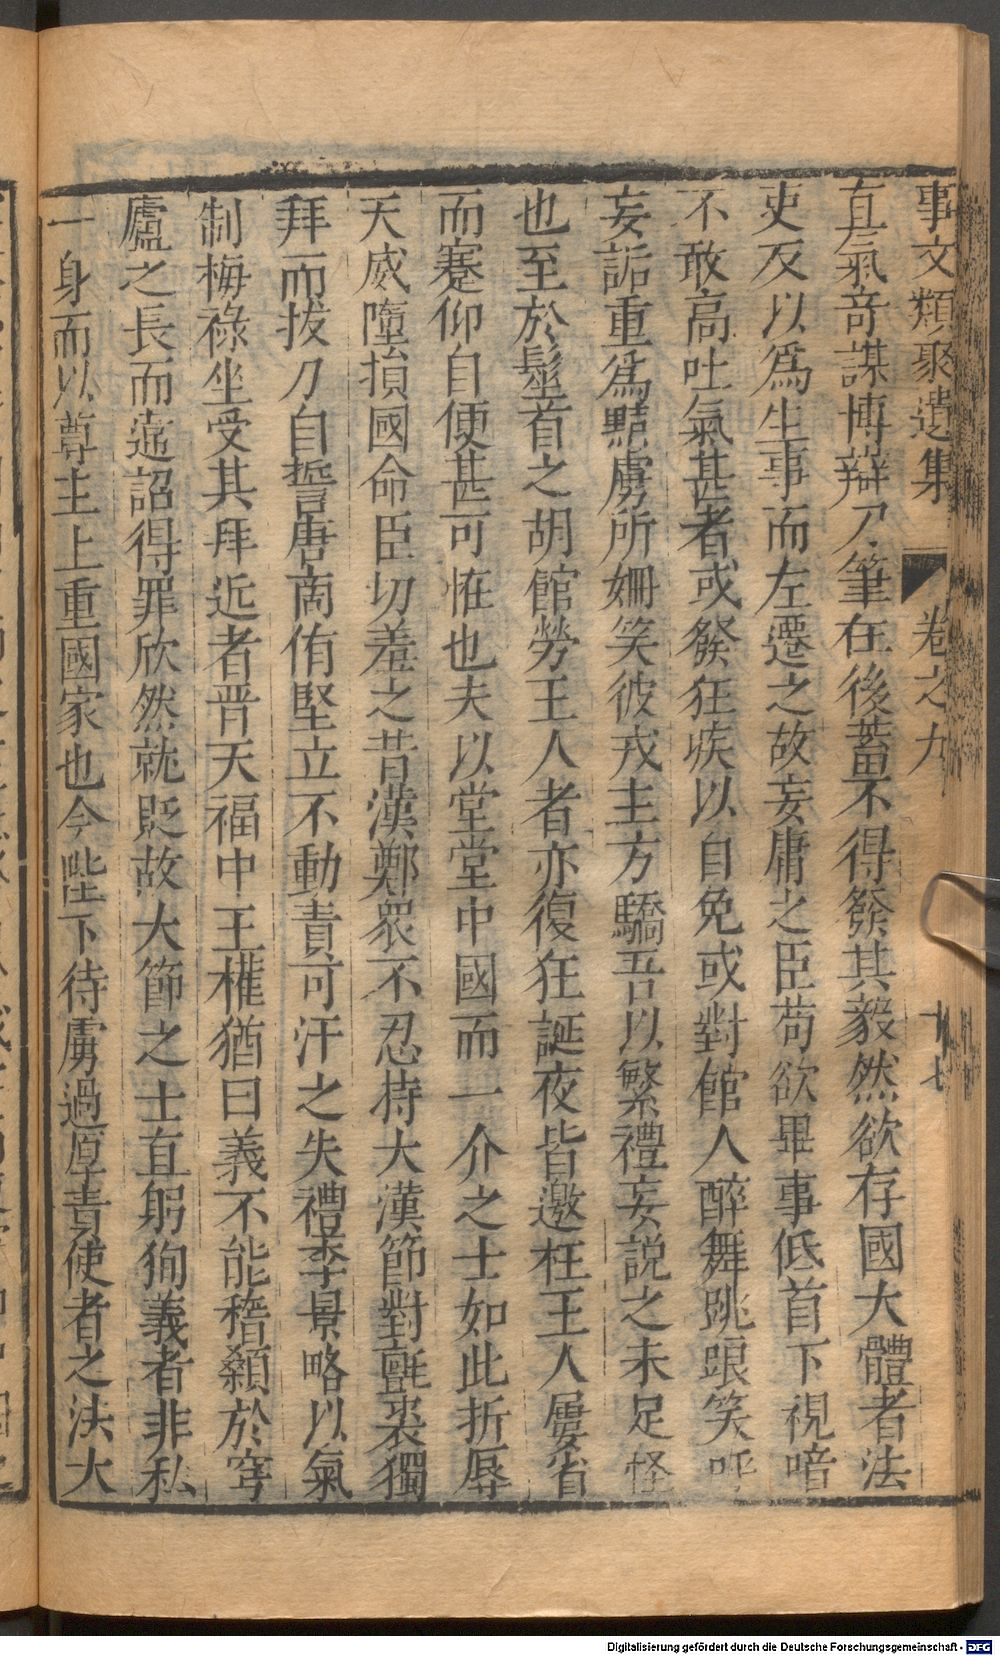 事文類聚遺集 卷之九 十七
直氣奇謀博辯刀筆在後蓄不得發其毅然欲存國大體者法
吏反以爲生事而左遷之故妄庸之臣苟欲畢事低首下視喑
不敢高吐氣甚者或發狂疾以自免或對館人醉舞跳踉笑呼
妄詬重爲黠虜所姍笑彼戎主方驕吾以繁禮妄說之未足怪
也至於髽首之胡館勞王人者亦復狂誕夜皆邀枉王人屢省
而蹇仰自便甚可恠也夫以堂堂中國而一介之士如此折辱
天威墮損國命臣切羞之昔漢鄭衆不忍持大漢節對氈裘獨
拜而拔刀自誓唐南侑堅立不動責可汗之失禮李景略以氣
制梅祿坐受其拜近者晋天福中王權猶曰義不能稽顙於穹
廬之長而違詔得罪欣然就貶故大節之士直躬狥義者非私
一身而以尊主上重國家也今陛下待虜過厚責使者之法大
Digitalisierung gefördert durch die Deutsche Forschungsgemeinschaft - DFG